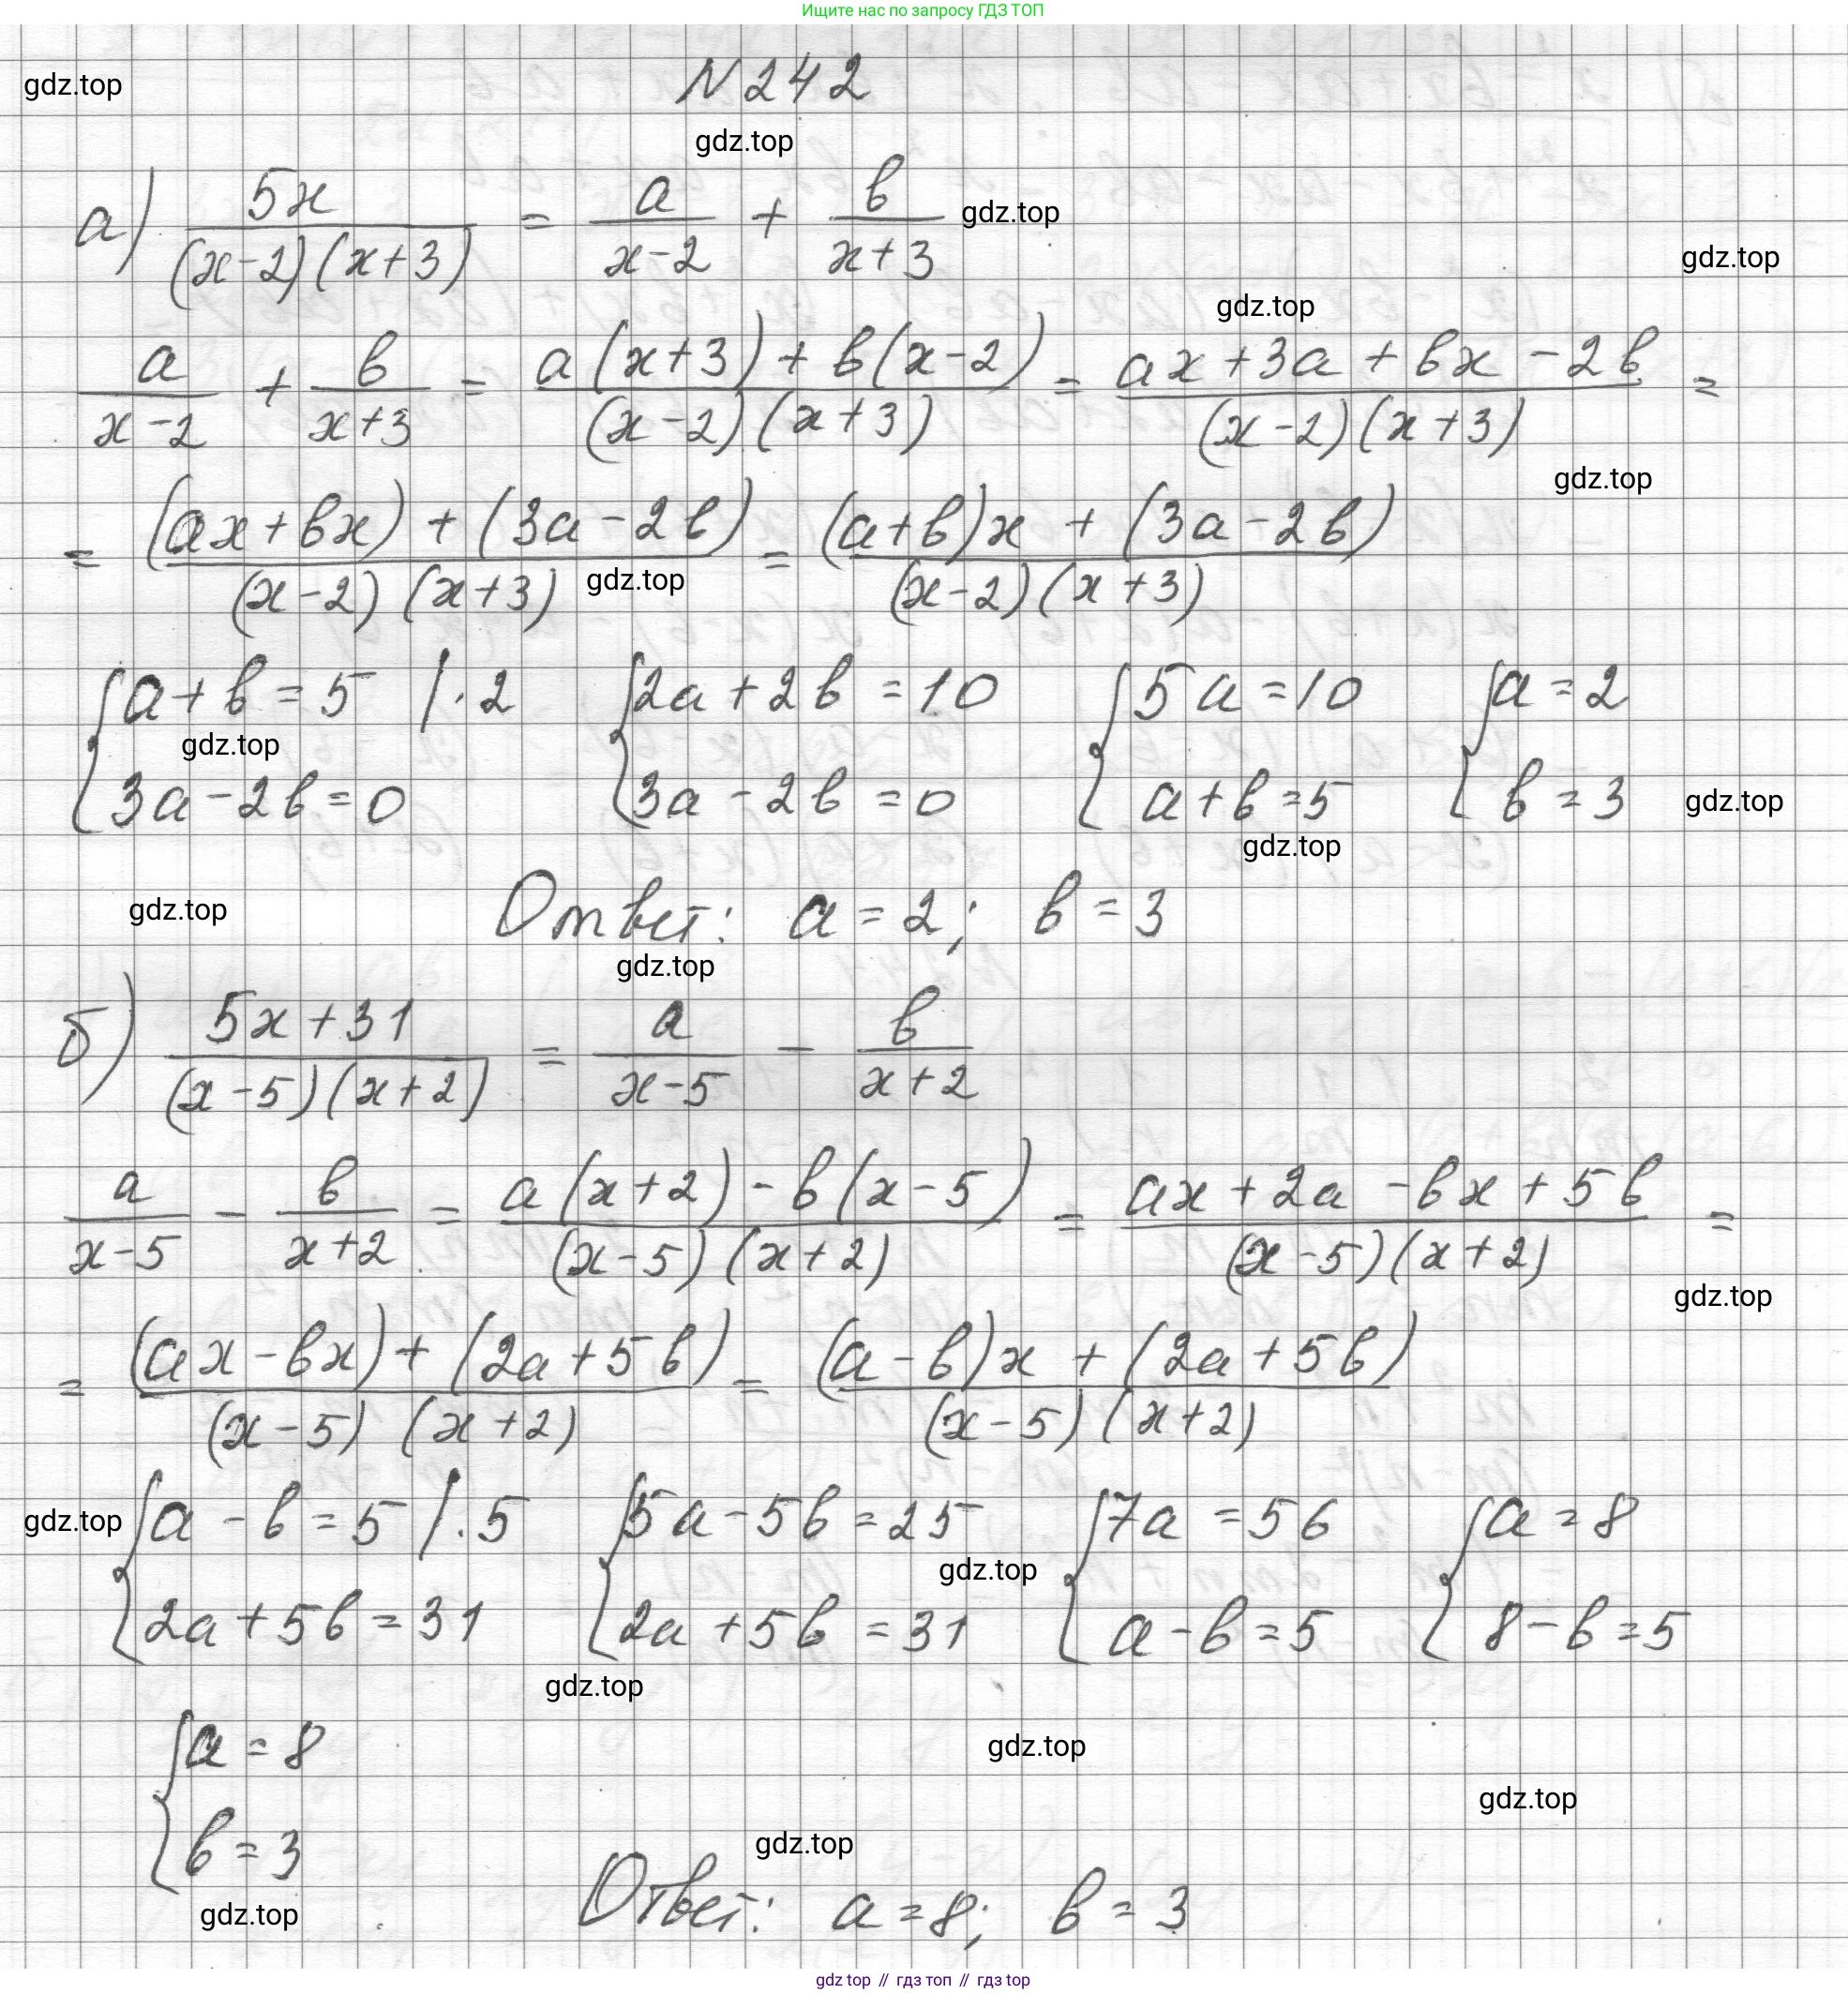 Ищите нас по запросу ГДЗ ТОП
N 242
gdz.top
gdz.top
а) 5x/((x-2)(x+3)) = a/(x-2) + b/(x+3) gdz.top
gdz.top
gdz.top
a/(x-2) + b/(x+3) = (a(x+3) + b(x-2))/((x-2)(x+3)) = (ax + 3a + bx - 2b)/((x-2)(x+3)) =
gdz.top
= ((ax+bx) + (3a-2b))/((x-2)(x+3)) = ((a+b)x + (3a-2b))/((x-2)(x+3))
gdz.top
{a+b=5 |·2 {2a+2b=10 {5a=10 {a=2
gdz.top
{3a-2b=0 {3a-2b=0 {a+b=5 {b=3 gdz.top
gdz.top
gdz.top
Ответ: a=2; b=3
gdz.top
б) (5x+31)/((x-5)(x+2)) = a/(x-5) - b/(x+2)
a/(x-5) - b/(x+2) = (a(x+2) - b(x-5))/((x-5)(x+2)) = (ax + 2a - bx + 5b)/((x-5)(x+2)) =
gdz.top
= ((ax-bx) + (2a+5b))/((x-5)(x+2)) = ((a-b)x + (2a+5b))/((x-5)(x+2))
gdz.top {a-b=5 |·5 {5a-5b=25 {7a=56 {a=8
gdz.top
{2a+5b=31 {2a+5b=31 {a-b=5 {8-b=5
gdz.top
{a=8
gdz.top
gdz.top
{b=3
gdz.top
gdz.top
Ответ: a=8; b=3
gdz top // гдз топ // гдз top